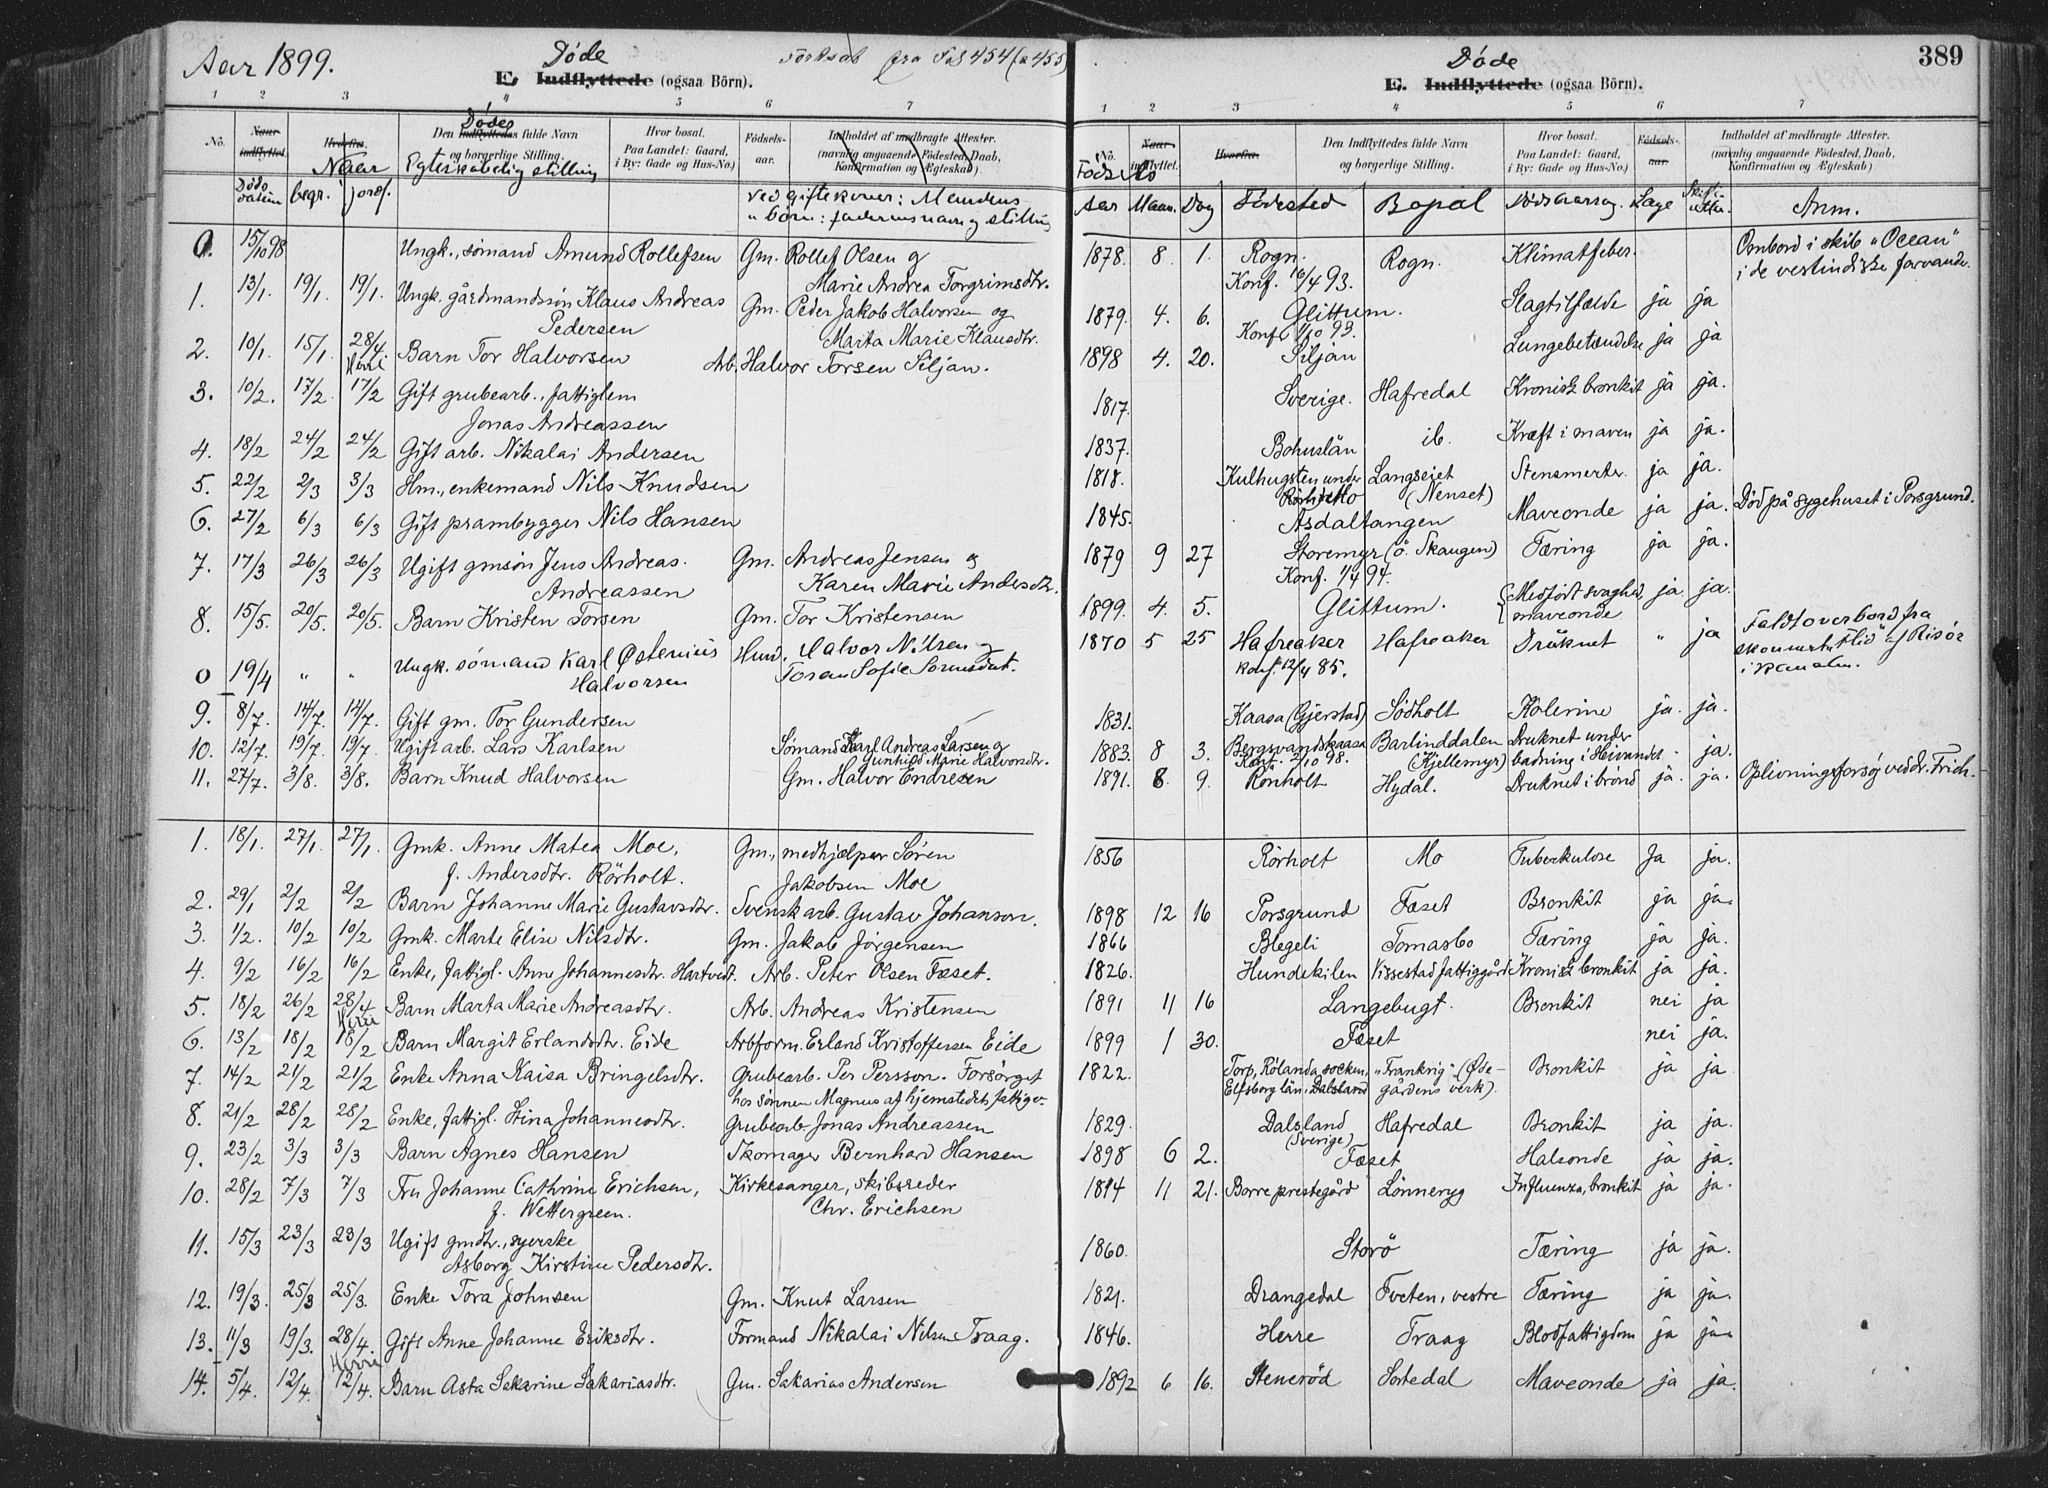 Aar 1899.
Døde
Fortsat fra Fol 454 (a 455)
E. Indflyttede (ogsaa Börn).
1 2 3 4 5 6 7
No. Naar indflyttet. Hvorfra. Den Indflyttedes fulde Navn og borgerlige Stilling. Hvor bosat. Paa Landet: Gaard, i By: Gade og Hus-No.) Födsels-aar. Indholdet af medbragte Attester. (navnlig angaaende Födested, Daab, Konfirmation og Ægteskab).
Dødes
Naar Egteskabelig stilling
Døds datum begr. jordf. ved giftekoner: Mandens
" börn: faderens navn og stilling
0. 15/10 98 Ungk., sømand Amund Rollefsen Gm. Rollef Olsen g
Marie Andrea Torgrimsdtr.
1. 13/1. 19/1. 19/1. Ungk. gårdmandssøn Klaus Andreas Gm. Peder Jakob Halvorsen og
Pedersen Marta Marie Klausdtr.
2. 10/1. 15/1. 28/4. Herre Barn Tor Halvorsen Arb. Halvor Torsen Siljan.
3. 10/2. 17/2 17/2 Gift grubearb., fattiglem
Jonas Andreassen
4. 18/2 24/2 24/2 Gift arb. Nikalai Andersen
5. 22/2 2/3 3/3 Hm., enkemand Nils Knudsen
6. 27/2 6/3 6/3 Gift prambygger Nils Hansen
7. 17/3 26/3 26/3 Ugift gmsön Jens Andreas. Gm. Andreas Jensen og
Andreassen Karen Marie Andersdtr.
8. 15/5. 20/5. 20/5. Barn Kristen Torsen Gm. Tor Kristensen
0 19/4 " " Ungk. sømand Karl Østenius Husm. Halvor Nilsen og
Halvorsen Toran Sofie
9. 8/7. 14/7. 14/7. Gift gm. Tor Gundersen
10. 12/7. 19/7. 19/7. Ugift arb. Lars Karlsen Sømand Karl Andreas Larsen g
Gunhild Marie Halvorsdtr.
11. 27/7. 3/8. 3/8. Barn Knud Halvorsen Gm. Halvor Endresen
1. 18/1. 27/1. 27/1. Gmk. Anne Matea Moe, Gm., medhjælper Søren
f. Andersdtr. Rörholt. Jakobsen Moe
2. 29/1 2/2 2/2 Barn Johanne Marie Gustavsdtr. Svensk arb. Gustav Johanson.
3. 1/2. 10/2 10/2 Gmk. Marte Elise Nilsdtr. Gm. Jakob Jørgensen
4. 9/2 16/2 16/2 Enke, fattigl. Anne Johannesdtr. Hartvedt. Arb. Peter Olsen Fæset.
5. 18/2 26/2 28/4 Herre Barn Marta Marie Andreasdtr. Arb. Andreas Kristensen
6. 13/2 18/2 18/2 Barn Margit Erlandsdtr. Eide Arbform. Erland Kristoffersen Eide
7. 14/2 21/2 21/2 Enke Anna Kaisa Bringelsdtr. Grubearb. Per Persson. Forsörget
hos sönnen Magnus af hjemstedets fattigv.
8. 21/2 28/2 28/2 Enke, fattigl. Stina Johannesdtr. Grubearb. Jonas Andreassen
9. 23/2 3/3 3/3 Barn Agnes Hansen Skomager Bernhard Hansen
10. 28/2 7/3 7/3 Fru Johanne Cathrine Erichsen, Kirkesanger, skibsreder
f. Wettergreen. Chr. Erichsen
11. 15/3 23/3 23/3 Ugift gmdtr., syerske
Asborg Kirstine Pedersdtr.
12. 19/3. 25/3 25/3. Enke Tora Johnsen Gm. Knut Larsen
13. 11/3 19/3. 28/4. Herre Gift Anne Johanne Eriksdtr. Formand Nikalai Nilsen Traag.
14. 5/4. 12/4 12/4. Barn Asta Sakarine Sakariasdtr. Gm. Sakarias Andersen
389
Døde
E. Indflyttede (ogsaa Börn).
1 2 3 4 5 6 7
No. Naar indflyttet. Hvorfra. Den Indflyttedes fulde Navn og borgerlige Stilling. Hvor bosat. Paa Landet: Gaard, i By: Gade og Hus-No.) Födsels-aar. Indholdet af medbragte Attester. (navnlig angaaende Födested, Daab, Konfirmation og Ægteskab).
Aar Maan. Dag Födested Bopæl Dödsaarsag. Læge Skifteretten. Anm.
1878. 8. 1. Rogn. Rogn. Klimatfeber. Ombord i skib "Ocean"
Konf. 16/4 93. i de vestindiske farvande.
1879. 4. 6. Glittum. Slagtilfælde ja ja
Konf. 1/10 93.
1898 4. 20. Siljan Lungebetændelse ja ja
1817. Sverige. Hafredal Kronisk bronkit ja ja.
1837. Bohuslän ib. Kræft i maven ja ja.
1818. Kulhugsten under Langseiet Stensmerter. ja ja.
(Nenset)
1845. Asdaltangen Maveonde ja ja. Död på sygehuset i Porsgrund.
1879 9 27 Storemyr (ö. Skaugen) Tæring ja ja.
Konf. 1/4 94.
1899. 4. 5. Glittum. Medfödt svaghed, ja ja.
maveonde
1870 5 25 Hafreaker Hafreaker Druknet " ja Faldt overbord fra
konf. 12/4 85. skonnert "Flid" af Risör
i kanalen.
1831. Kaasa (Gjerstad) Södholt Kolerine ja ja.
1883. 8 3. Bergsvandskaasa Barlinddalen Druknet under
Konf. 2/10 98. (Kjellemyr) badning i Heivandet - ja.
1891. 8 9. Rörholt Hydal. Druknet i brönd ja ja. Oplivningsforsög ved dr. Frich.
1856 Rörholt Mo Tuberkulose Ja ja.
1898 12 16 Porsgrund Fæset Bronkit ja ja.
1866 Blegeli Tomasbo Tæring ja ja.
1826. Hundekilen Vissestad fattiggård Kronisk bronkit ja ja.
1891 11 16 Langebugt. Bronkit nei ja
1899 1 30. Fæset nei ja.
1822. Torp, Rölanda socken, "Frankrig" (Øde- Bronkit ja ja
Elfsborg län, Dalsland gårdens verk).
1829. Dalsland Hafredal Bronkit ja ja.
(Sverige)
1898 6 2. Fæset Halsonde ja ja.
1814 11 21. Borre prestegård Lönneryg Influenza, bronkit ja ja.
1860. Storö Tæring ja ja.
1821. Drangedal Tveten, vestre Tæring ja ja.
1846. Herre Traag Blodfattigdom ja ja.
1892 6 16. Stenerød Sortedal Maveonde ja ja.